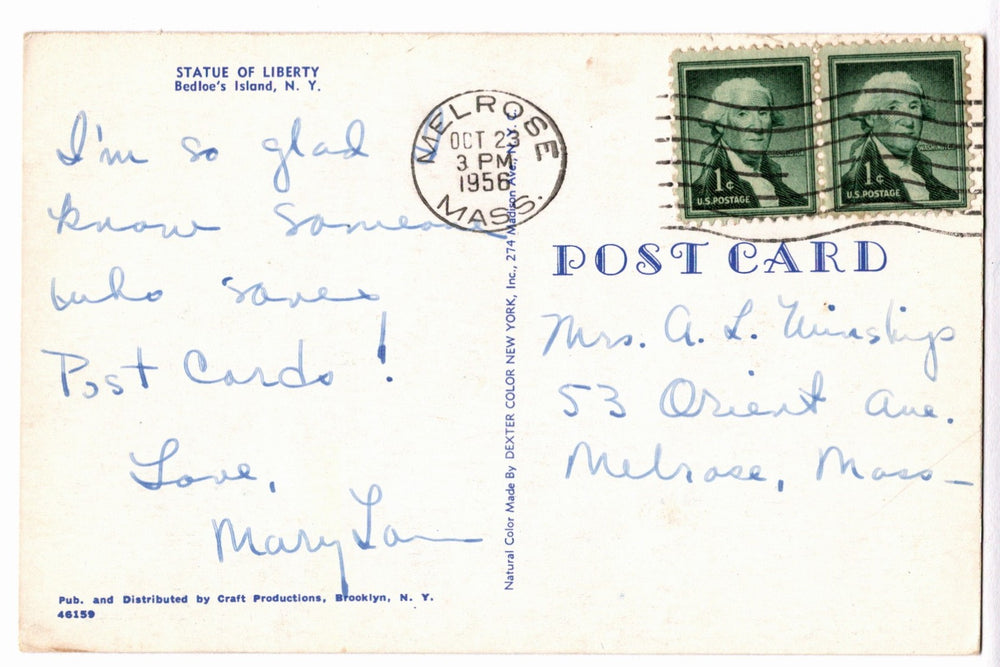 STATUE OF LIBERTY
Bedloe's Island, N. Y.
I'm so glad I
know someone
who saves
Post Cards!
Love,
Mary Lou
Pub. and Distributed by Craft Productions, Brooklyn, N. Y.
46159
Natural Color Made By DEXTER COLOR NEW YORK, Inc., 274 Madison Ave., N.Y.C.
MELROSE
OCT 23
3 PM
1956
MASS.
1¢
U.S. POSTAGE
1¢
U.S. POSTAGE
POST CARD
Mrs. A. L. Winship
53 Orient Ave.
Melrose, Mass-